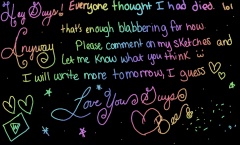 Hey Guys! Everyone thought I had died lol
that's enough blabbering for now
Anyway Please comment on my sketches and
let me know what you think
I will write more tomorrow, I guess
Love You Guys